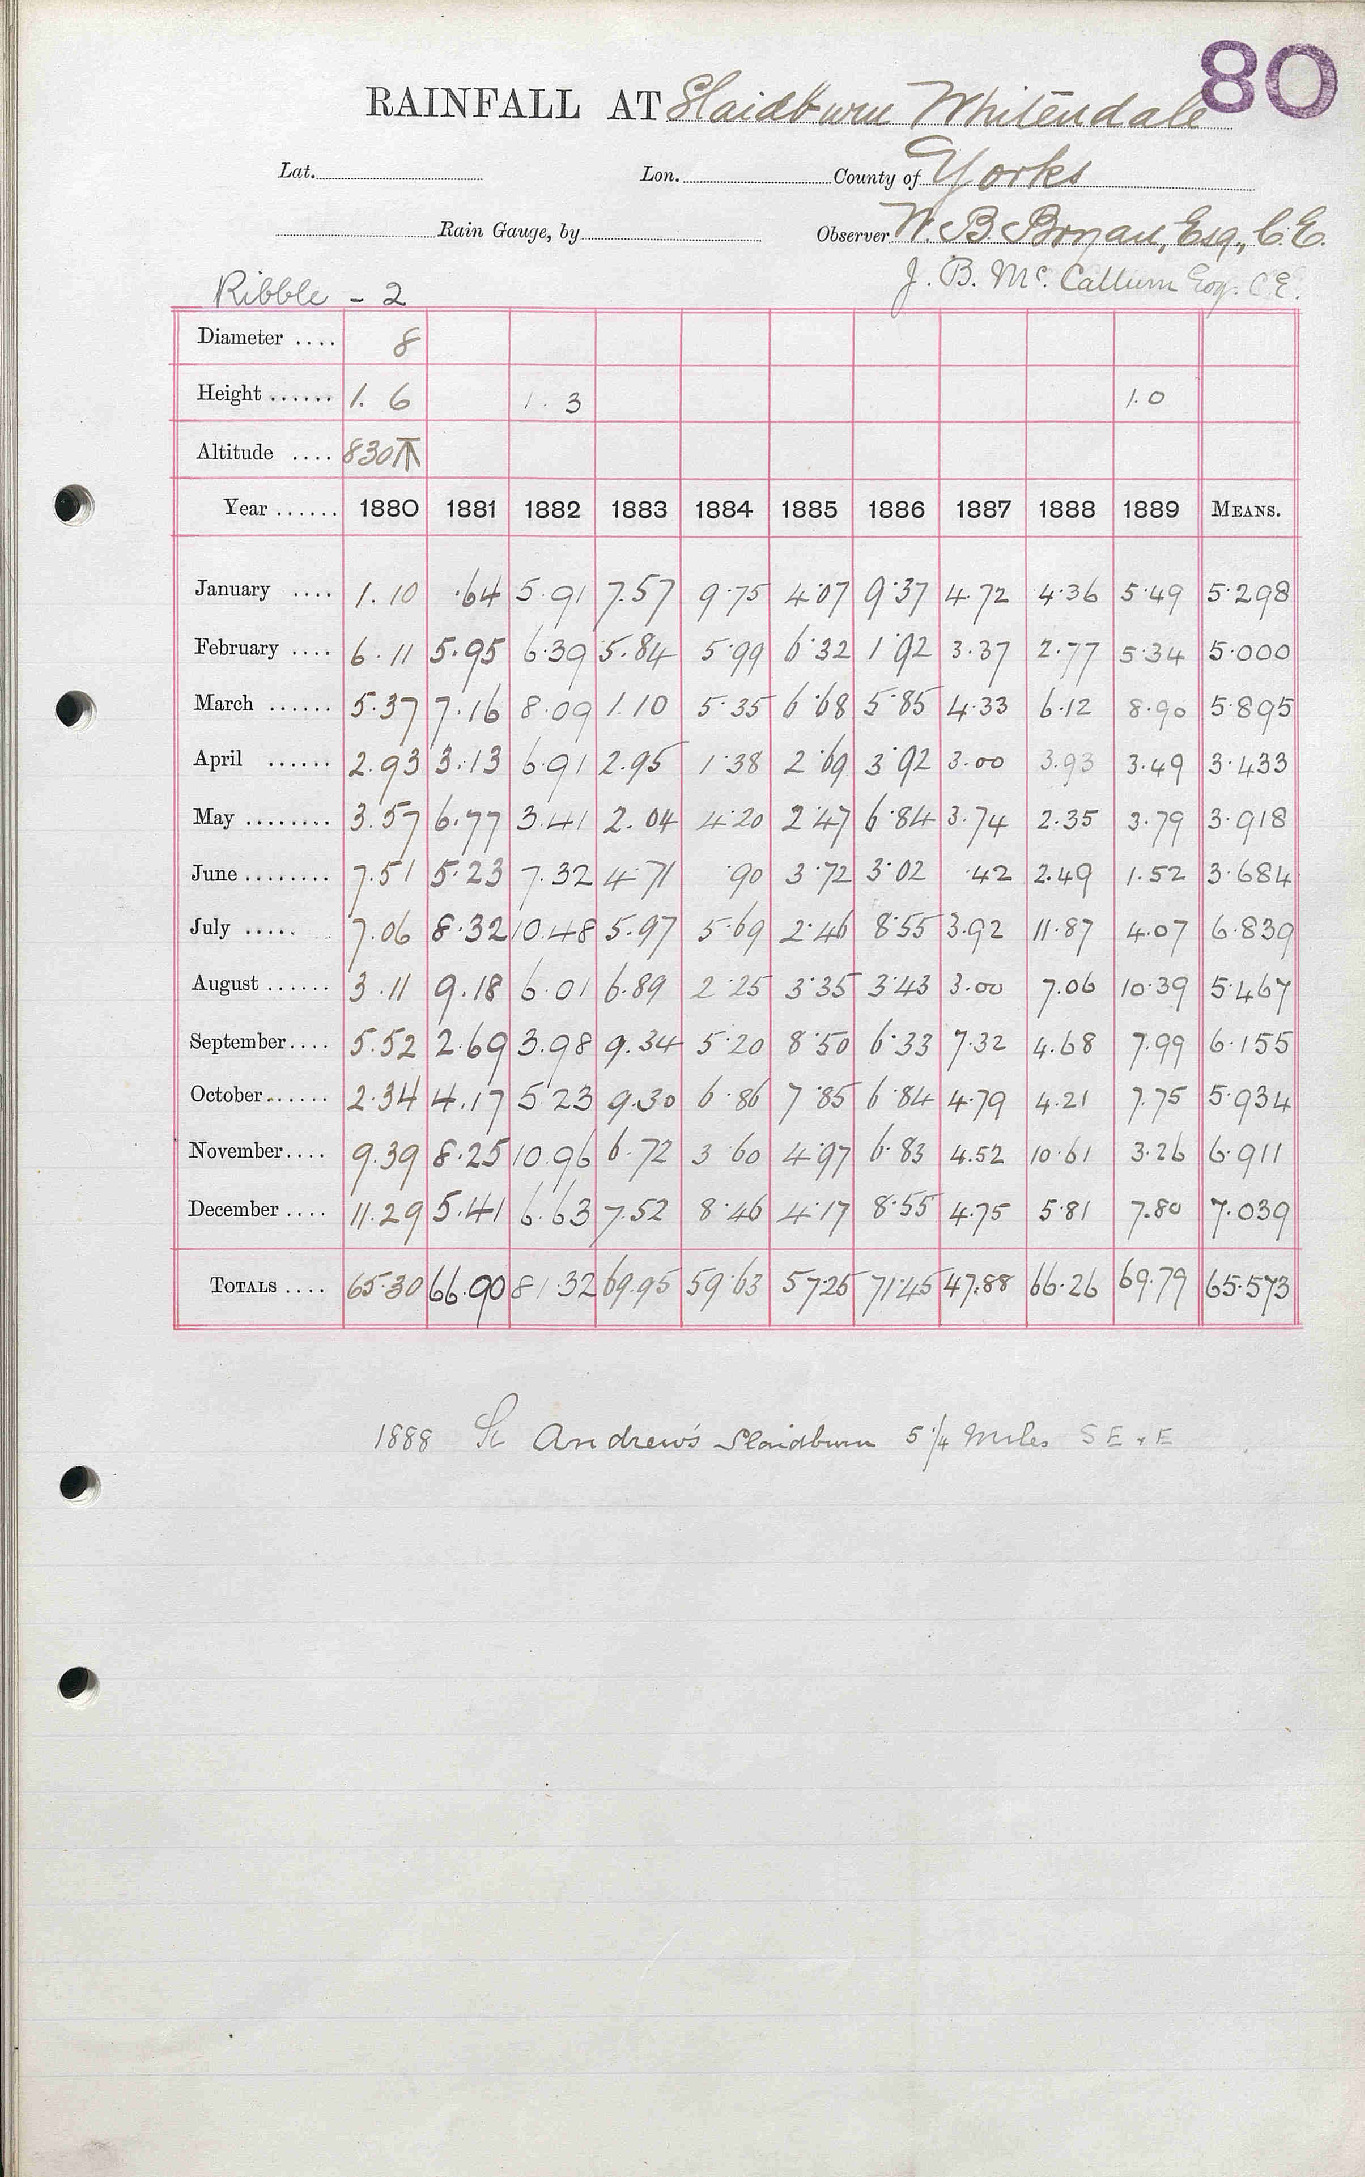 80
RAINFALL AT Slaidburn Whitendale
Lat. Lon. County of Yorks
Rain Gauge, by Observer W. B. Bryan, Esq., C.E.
J. B. Mc. Callum Esq. C.E.
Ribble - 2
Diameter .... 8
Height ...... 1. 6 1. 3 1.0
Altitude .... 830
Year ...... 1880 1881 1882 1883 1884 1885 1886 1887 1888 1889 MEANS.
January .... 1.10 .64 5.91 7.57 9.75 4.07 9.37 4.72 4.36 5.49 5.298
February .... 6.11 5.95 6.39 5.84 5.99 6.32 1.92 3.37 2.77 5.34 5.000
March ...... 5.37 7.16 8.09 1.10 5.35 6.68 5.85 4.33 6.12 8.90 5.895
April ...... 2.93 3.13 6.91 2.95 1.38 2.69 3.92 3.00 3.93 3.49 3.433
May ........ 3.57 6.77 3.41 2.04 4.20 2.47 6.84 3.74 2.35 3.79 3.918
June ........ 7.51 5.23 7.32 4.71 .90 3.72 3.02 .42 2.49 1.52 3.684
July ..... 7.06 8.32 10.48 5.97 5.69 2.46 8.55 3.92 11.87 4.07 6.839
August ...... 3.11 9.18 6.01 6.89 2.25 3.35 3.43 3.00 7.06 10.39 5.467
September.... 5.52 2.69 3.98 9.34 5.20 8.50 6.33 7.32 4.68 7.99 6.155
October...... 2.34 4.17 5.23 9.30 6.86 7.85 6.84 4.79 4.21 7.75 5.934
November.... 9.39 8.25 10.96 6.72 3.60 4.97 6.83 4.52 10.61 3.26 6.911
December .... 11.29 5.41 6.63 7.52 8.46 4.17 8.55 4.75 5.81 7.80 7.039
TOTALS .... 65.30 66.90 81.32 69.95 59.63 57.25 71.45 47.88 66.26 69.79 65.573
1888 St Andrew's Slaidburn 5 1/4 Miles SE & E